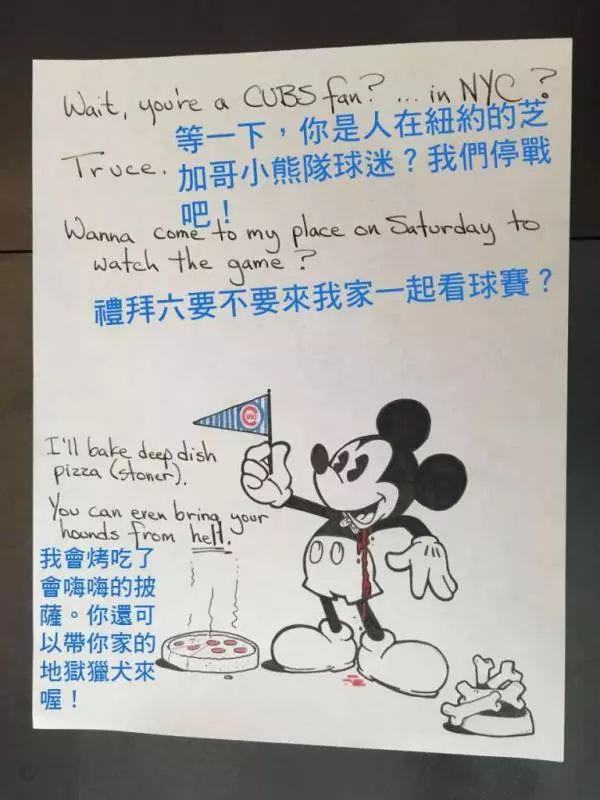 Wait, you're a CUBS fan? ... in NYC?
等一下，你是人在紐約的芝
Truce.
加哥小熊隊球迷？我們停戰
吧！
Wanna come to my place on Saturday to
watch the game?
禮拜六要不要來我家一起看球賽？
I'll bake deep dish
pizza (stoner).
You can even bring your
hounds from hell.
我會烤吃了
會嗨嗨的披
薩。你還可
以帶你家的
地獄獵犬來
喔！